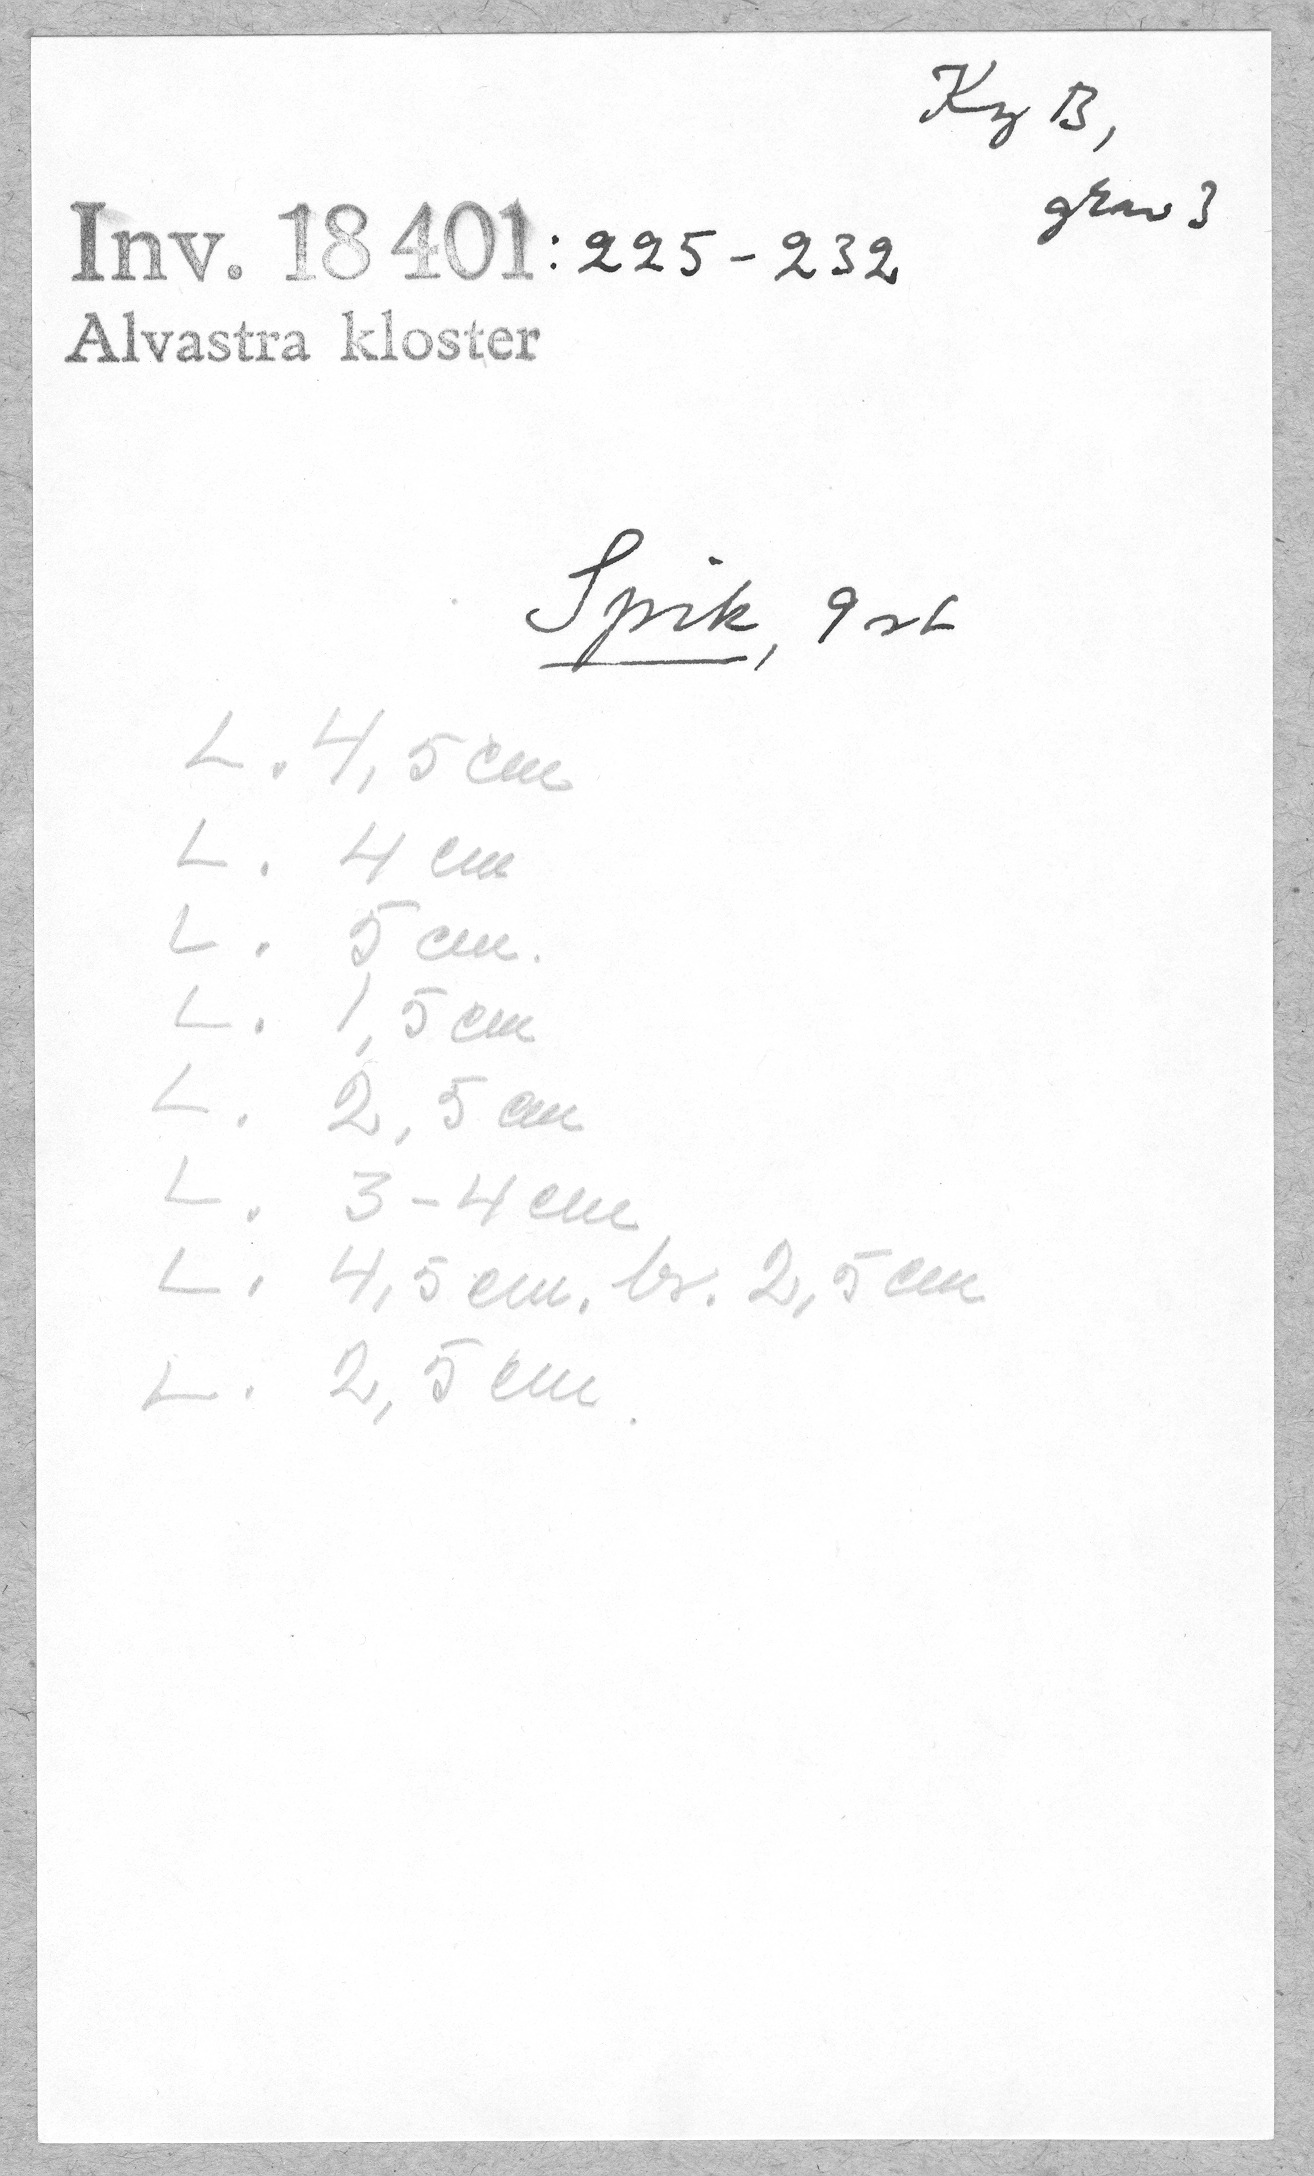 Ky B,
grav 3
Inv. 18 401:225-232
Alvastra kloster
Spik, 9 st
L. 4,5 cm
L. 4 cm
L. 5 cm.
L. 1,5 cm
L. 2,5 cm
L. 3-4 cm
L. 4,5 cm. br. 2,5 cm
L. 2,5 cm.